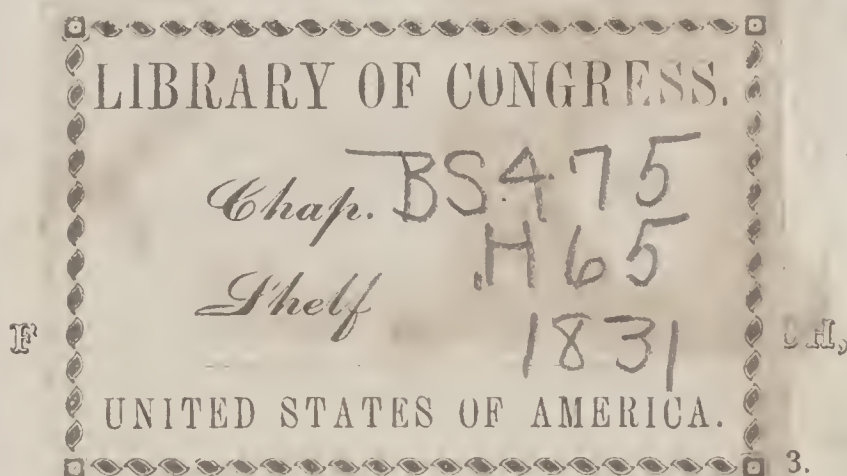 LIBRARY OF CONGRESS.
Chap. BS475
Shelf .H65
1831
UNITED STATES OF AMERICA.
3.